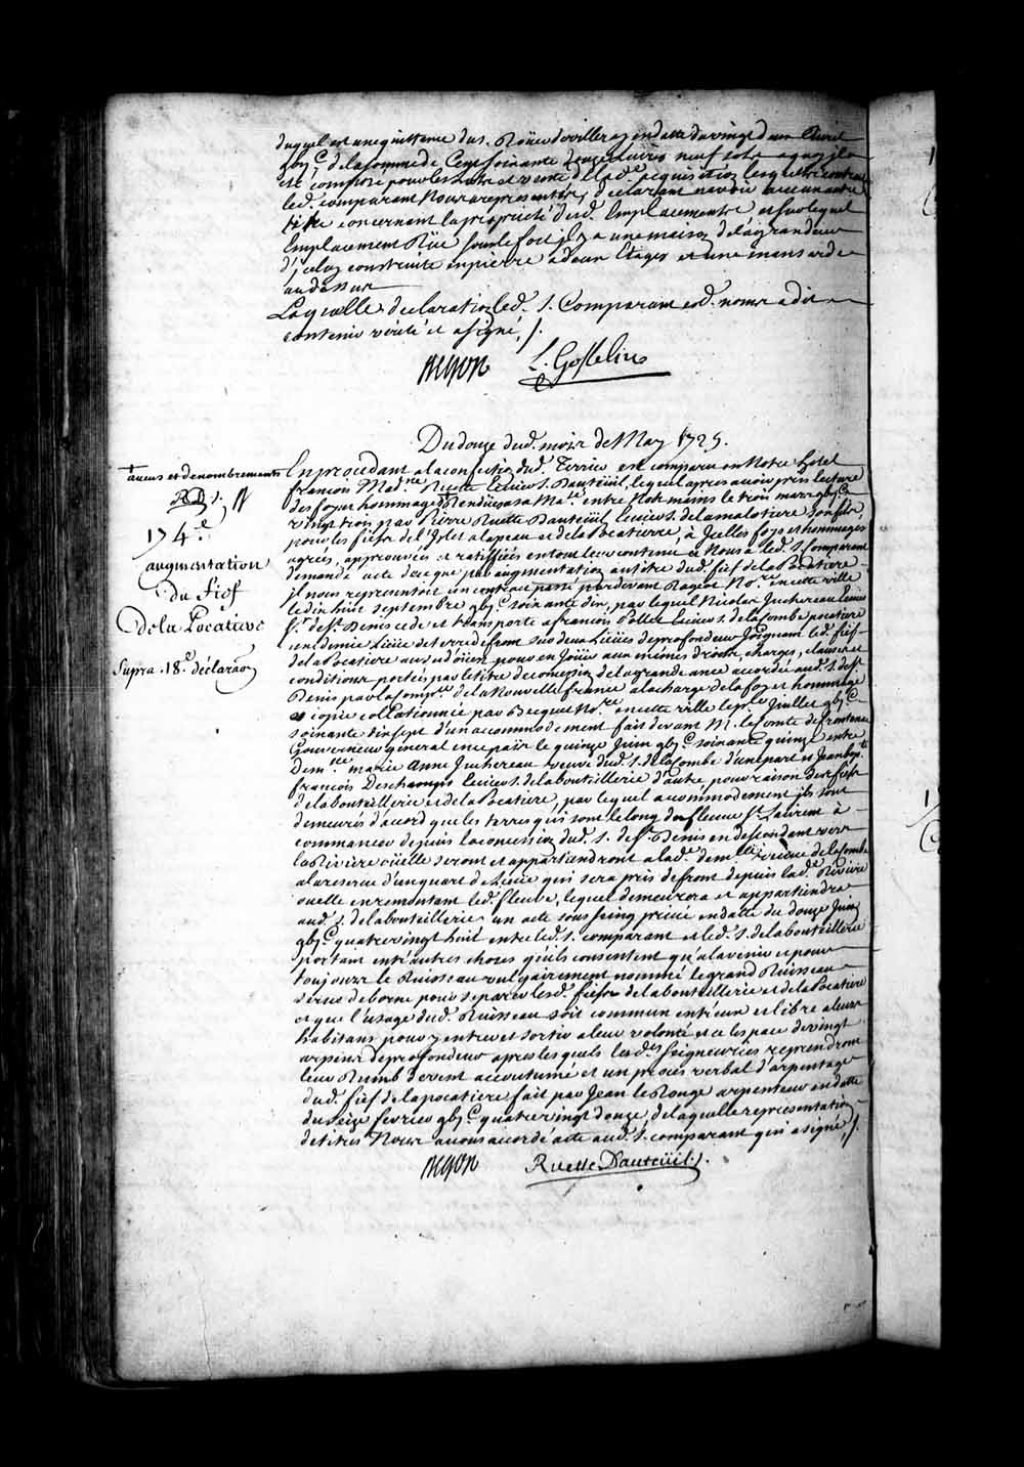 duquel est une quittance du s. Roüer devilleray en datte du vingt deux Avril
gbi.c de la somme de Cent soixante douze livres neuf sols a quoy il a
esté composé pour les lots et vente de lad.e acquisition lesquels contrats
led. comparant Nous a representés, declarant n'avoir aucun autre
titre concernant la proprieté dud. Emplacement et sur lequel
Emplacement Rüe sous le fort il y a une maison de la grandeur
d'iceluy construite en pierre a deux Etages et une mansarde
au dessus
Laquelle declaration led. s. Comparant esd. noms a dit
contenir verité et a signé ./.
Begon L. Gosselin
Du douze dud. mois de May 1725.
aveus et denombrements
174.e
augmentation
du fief
Dela Pocatiere
Supra .18.e déclaraon
En procedant a la confection dud. Terrier est comparu en Notre hotel
françois Mad.ne Ruette Ecuier s. Dauteüil, lequel apres avoir pris lecture
des foy et hommage Rendües a sa Ma.té entre Nos mains le trois mars gbi.c
vingt trois par Pierre Ruette Dauteüil Ecuier s. de la malotiere son fils,
pour les fiefs de l'Islet a la peau et de la Pocatierre, a Icelles foys et hommages
agréé, approuvées et ratiffiées en tout leur contenu et Nous a led. s. Comparant
demandé acte de ce que par augmentation au titre dud. fief de la Pocatiere
il nous representoit un contract passé par devant Rageot No.re en cette ville
le dix huit septembre gbi.c soixante dix, par lequel Nicolas Juchereau Ecuier
s.r de S.t Denis cede et transporte a francois Pollet Ecuier s. de la Combe pocatiere
une demie Lieüe de terre de front sur deux Lieües de profondeur Joignant led. fief
de la Pocatiere au sud oüest pour en Joüir aux mêmes droits, charges, clauses et
conditions portés par le titre de concession de la grande ance accordé aud. s. de S.t
Denis par la Comp.ie de la Nouvelle france a la charge de la foy et hommage
et copie collationnée par Becquet No.re en cette ville le p.er Juillet gbi.c
soixante dix sept d'un accommodement fait devant M. le Comte de frontenac
Gouverneur général en ce païs le quinze Juin gbi.c soixante quinze entre
Dem.lle marie Anne Juchereau veuve dud. s. de la Combe d'une part et Jean bap.te
françois Deschamps Ecuier s. de la bouteillerie d'autre pour raison des fiefs
de la bouteillerie et de la Pocatiere, par lequel accommodement ils sont
demeurés d'accord que les terres qui sont le long du fleuve S.t Laurent a
commancer depuis la concession dud. s. de S.t Denis en descendant vers
la Riviere oüelle seront et appartiendront a lad.e dem.lle veuve de la Combe
a la reserve d'un quart de Lieüe qui sera pris de front depuis lad.e Riviere
ouelle en remontant led. fleuve, lequel demeurera et appartiendra
aud. s. de la bouteillerie un acte sous seing privé en datte du douze Juin
gbi.c quatre vingt huit entre led. s. comparant et led. s. de la bouteillerie
portant entr'autres choses qu'ils consentent qu'a l'avenir et pour
toujours le Ruisseau vulgairement nommé le grand Ruisseau
serve de borne pour separer lesd. fiefs de la bouteillerie et de la Pocatiere
et que l'usage dud. Ruisseau soit commun entr'eux et libre a leurs
habitans pour y entrer et sortir a leur volonté et ce lespace de vingt
arpens de profondeur apres lesquels lesd.es seigneuries reprendront
leur Rumb de vent accoutumé et un procès verbal d'arpentage
dud. fief de la pocatiere fait par Jean le Rouge arpenteur en datte
du seize fevrier gbi.c quatre vingt douze, de laquelle representation
de titres Nous avons accordé acte aud. s. comparant qui a signé ./.
Begon Ruette Dauteüil ./.